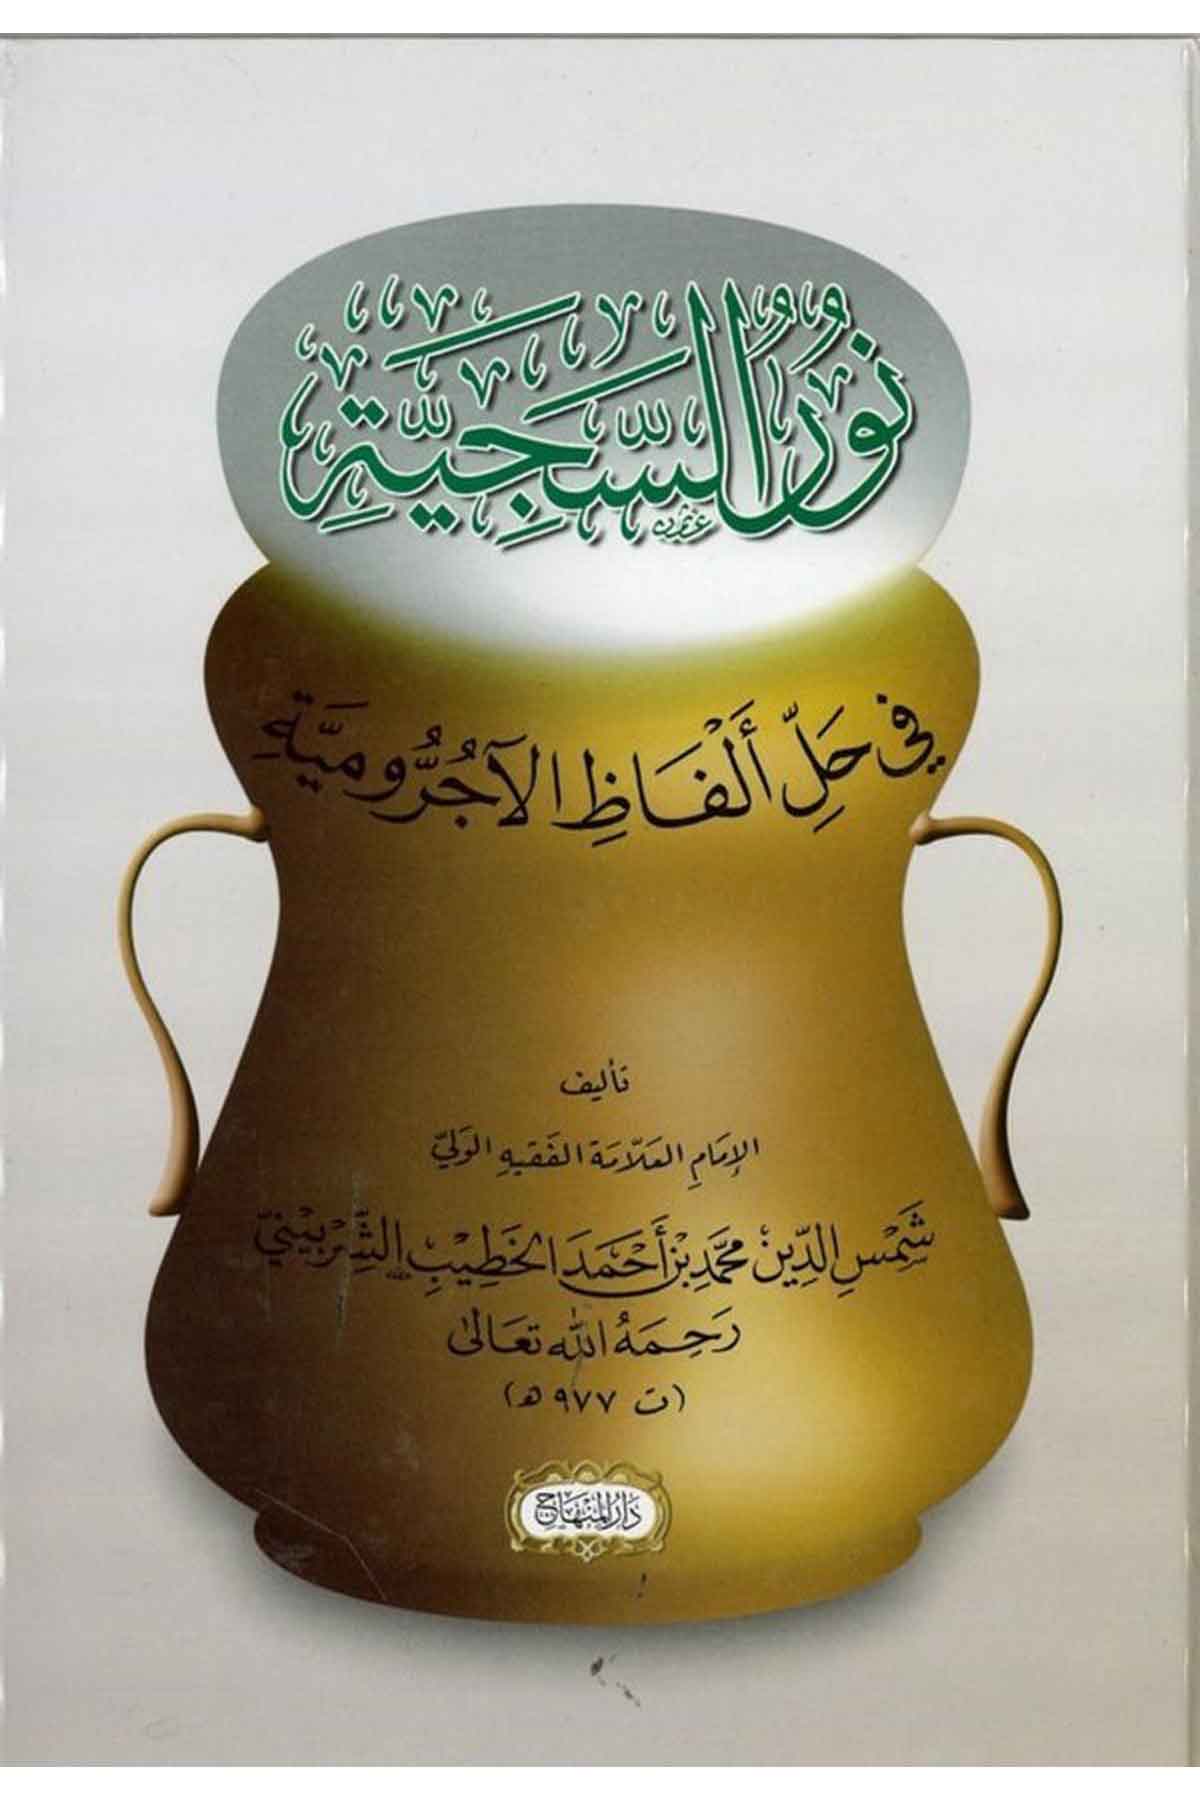 نُورُ السَّجِيَّةِ
فِي حَلِّ أَلْفَاظِ الآجُرُّومِيَّةِ
تأليف
الإمَامِ العَلَّامَة الفَقيهِ الوَليّ
شَمْسِ الدِّينِ محمَّد بْنِ أَحْمَدَ الخَطِيْبِ الشِّرْبِينِيّ
رَحِمَهُ اللّٰه تَعَالىٰ
(ت ٩٧٧ هـ)
دَارُ المِنْهَاج